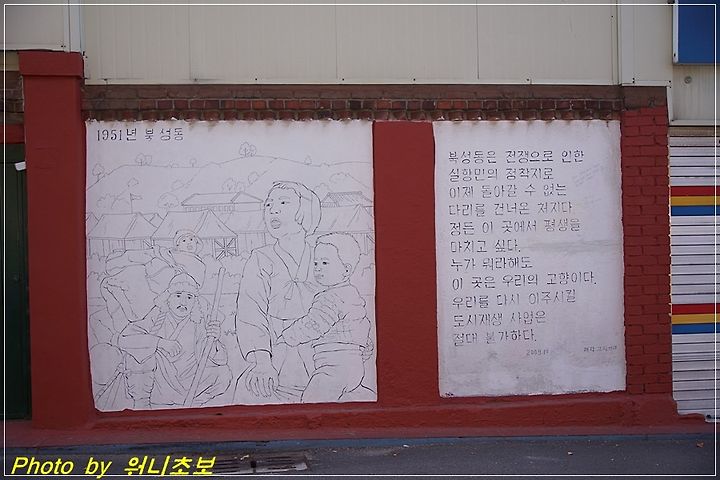 1951년 북성동
북성동은 전쟁으로 인한
실향민의 정착지로
이제 돌아갈 수 없는
다리를 건너온 처지다
정든 이 곳에서 평생을
마치고 싶다.
누가 뭐라해도
이 곳은 우리의 고향이다.
우리를 다시 이주시킬
도시재생 사업은
절대 불가하다.
Photo by 워니초보